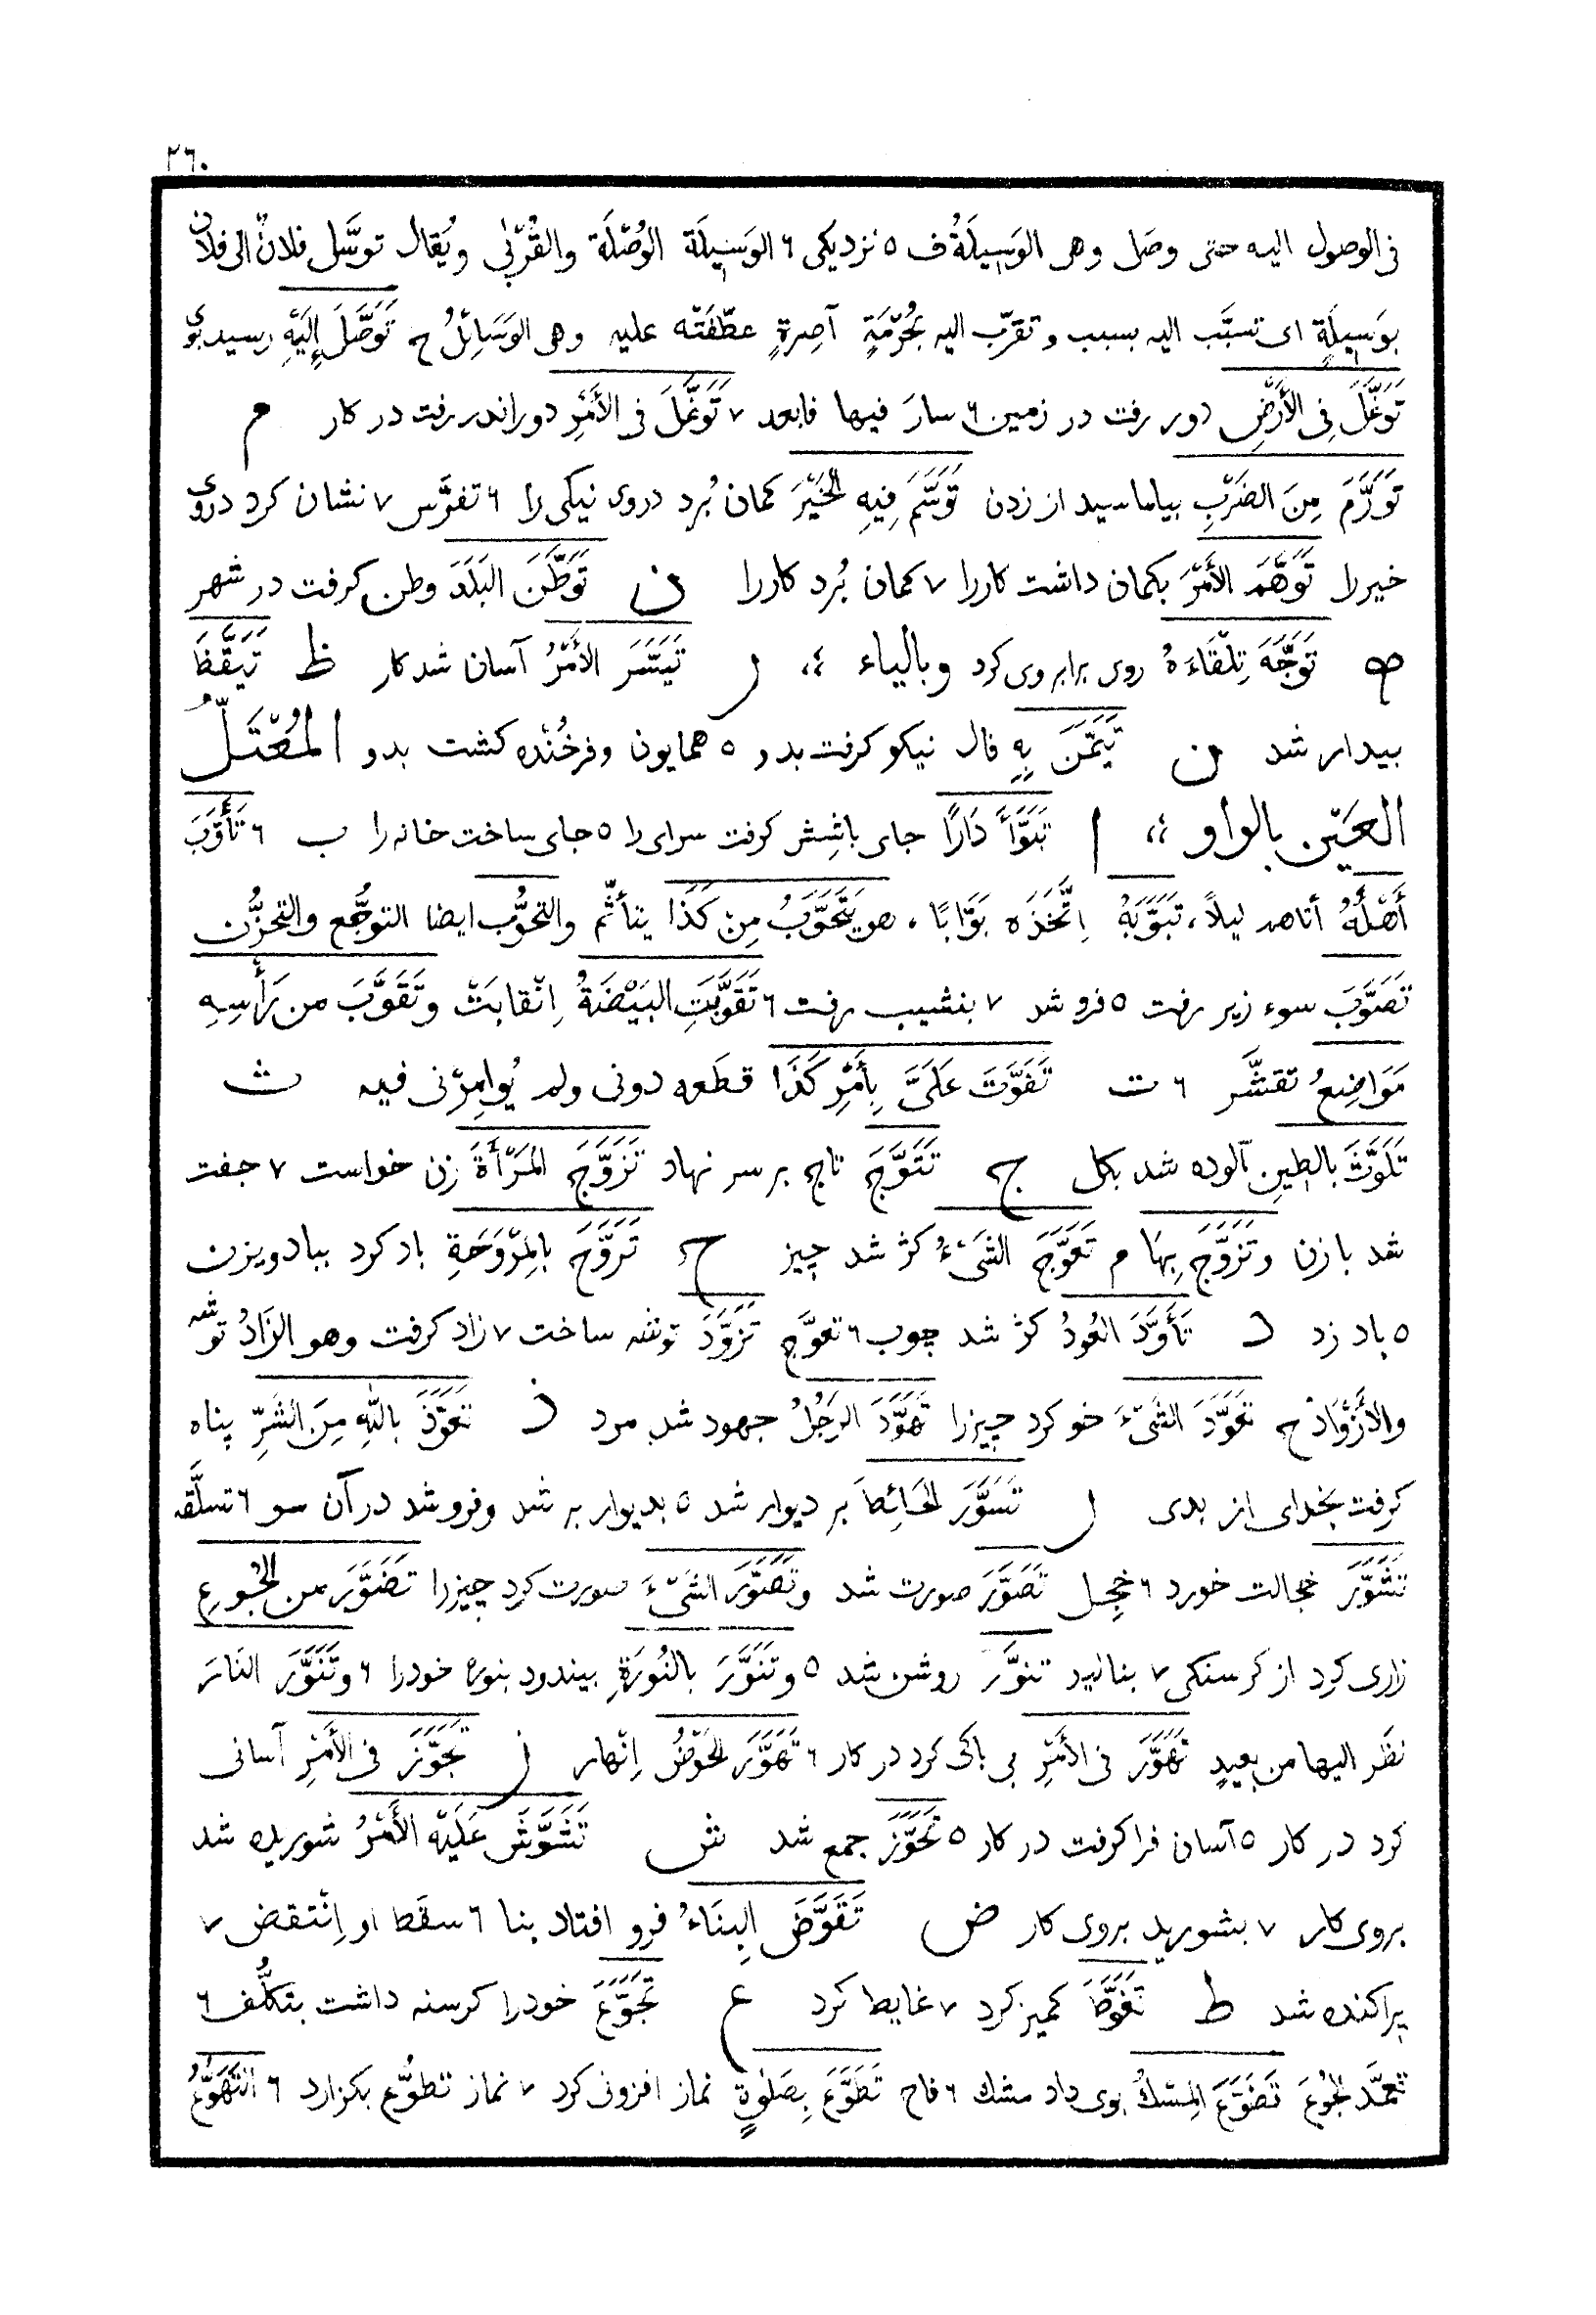 ٢٦٠
فى الوصول اليه حتى وصَل وهى الوَسِيلَةُ ف ٥ نزديكى ٦ الوَسِيلَة الوُصْلَة والقُرْبٰى ويُقال توسَّل فلانٌ الى فلان
بوَسِيلَةٍ اى تسبَّب اليه بسبب و تقرّب اليه بحُرْمَةٍ آصِرةٍ عطّفَتْه عليه وهى الوَسَائِلُ ح تَوَصَّلَ إِلَيْهِ رسيد بوى
تَوَغَّلَ فِى الأَرْضِ دور رفت در زمين ٦ سارَ فيها فابعد ٧ تَوَغَّلَ فى الأَمْرِ دور اندر رفت در كار م
تَوَرَّمَ مِنَ الضَرْبِ بياماسيد از زدن تَوَسَّمَ فِيهِ الخَيْرَ كمان بُرد دروى نيكى را ٦ تفرَّس ٧ نشان كرد دروى
خير را تَوَهَّمَ الأَمْرَ بكمان داشت كاررا ٧ كمان بُرد كاررا ن تَوَطَّنَ البَلَدَ وطن كرفت در شهر
ه تَوَجَّهَ تِلْقَاءَهُ روى برابر وى كرد وبالياء ؛، ر تَيَسَّرَ الأَمْرُ آسان شد كار ظ تَيَقَّظَ
بيدار شد ن تَيَمَّنَ بِهِ فال نيكو كرفت بدو ٥ همايون وفرخُنْده كشت بدو المُعْتَلُّ
العَيْن بالواو ؛، ا تَبَوَّأَ دَارًا جاى باشِش كرفت سراى را ٥ جاى ساخت خانه را ب ٦ تَأَوَّبَ
أَهْلَهُ أتاهم ليلاً، تَبَوَّبَهُ اِتَّخَذَه بَوَّابًا ، هو يَتَحَوَّبُ مِنْ كَذَا يتأثّم والتحوُّب ايضا التوجُّع والتحزُّن
تَصَوَّبَ سوء زير رفت ٥ فرو شد ٧ بنشيب رفت ٦ تَقَوَّبَتِ البَيْضَةُ اِنْقابَتْ وتَقَوَّبَ من رَأْسِهِ
مَوَاضِعُ تقشَّر ٦ ت تَفَوَّتَ عَلَىَّ بِأَمْرِ كَذَا قطَعه دونى ولم يُوامِرْنى فيه ث
تَلَوَّثَ بالطِينِ آلوده شد بكل ج تَتَوَّجَ تاج بر سر نهاد تَزَوَّجَ المَرْأَةَ زن خواست ٧ جفت
شد با زن وتَزَوَّجَ بِهَا م تَعَوَّجَ الشَىْءُ كژ شد چيز ح تَرَوَّحَ بالمِرْوَحَةِ باد كرد ببادويزن
٥ باد زد د تَأَوَّدَ العُودُ كژ شد چوب ٦ تعوَّج تَزَوَّدَ توشه ساخت ٧ زاد كرفت وهو الزَادُ توشه
والأَزْوَادُ ح تَعَوَّدَ الشَىْءَ خو كرد چيزرا تَهَوَّدَ الرَجُلُ جهود شد مرد ذ تَعَوَّذَ بالله مِنَ الشَرِّ پناه
كرفت بخداى از بدى ر تَسَوَّرَ الحَائِطَ بر ديوار شد ٥ بديوار بر شد وفرو شد در آن سو ٦ تسلَّقه
تَشَوَّرَ خجالت خورد ٦ خجِل تَصَوَّرَ صورت شد وتَصَوَّرَ الشَىْءَ صورت كرد چيزرا تَضَوَّرَ من الجُوعِ
زارى كرد از كرسنكى ٧ بناليد تنوَّر روشن شد ٥ وتَنَوَّرَ بالنُورَةِ بيندود بنوره خودرا ٦ وتَنَوَّرَ النَارَ
نظَر اليها من بعيدٍ تَهَوَّرَ فى الأَمْرِ بى باكى كرد در كار ٦ تَهَوَّرَ الحَوْضُ اِنْهار ز تَجَوَّزَ فى الأَمْرِ آسانى
كرد در كار ٥ آسان فرا كرفت در كار ٥ تَحَوَّزَ جمع شد ش تَشَوَّشَ عَلَيْه الأَمْرُ شوريده شد
بروى كار ٧ بشوريد بروى كار ض تَقَوَّضَ البِنَاءُ فرو افتاد بنا ٦ سقَط او اِنْتقض ٧
پراكنده شد ط تَغَوَّطَ كميز كرد ٧ غايط كرد ع تَجَوَّعَ خودرا كرسنه داشت بتكلُّف ٦
تعمَّد الجُوعَ تَضَوَّعَ المِسْكُ بوى داد مشك ٦ فاح تَطَوَّعَ بِصَلٰوةٍ نماز افزونى كرد ٧ نماز تطوُّع بكزارد ٦ التَهَوُّعُ